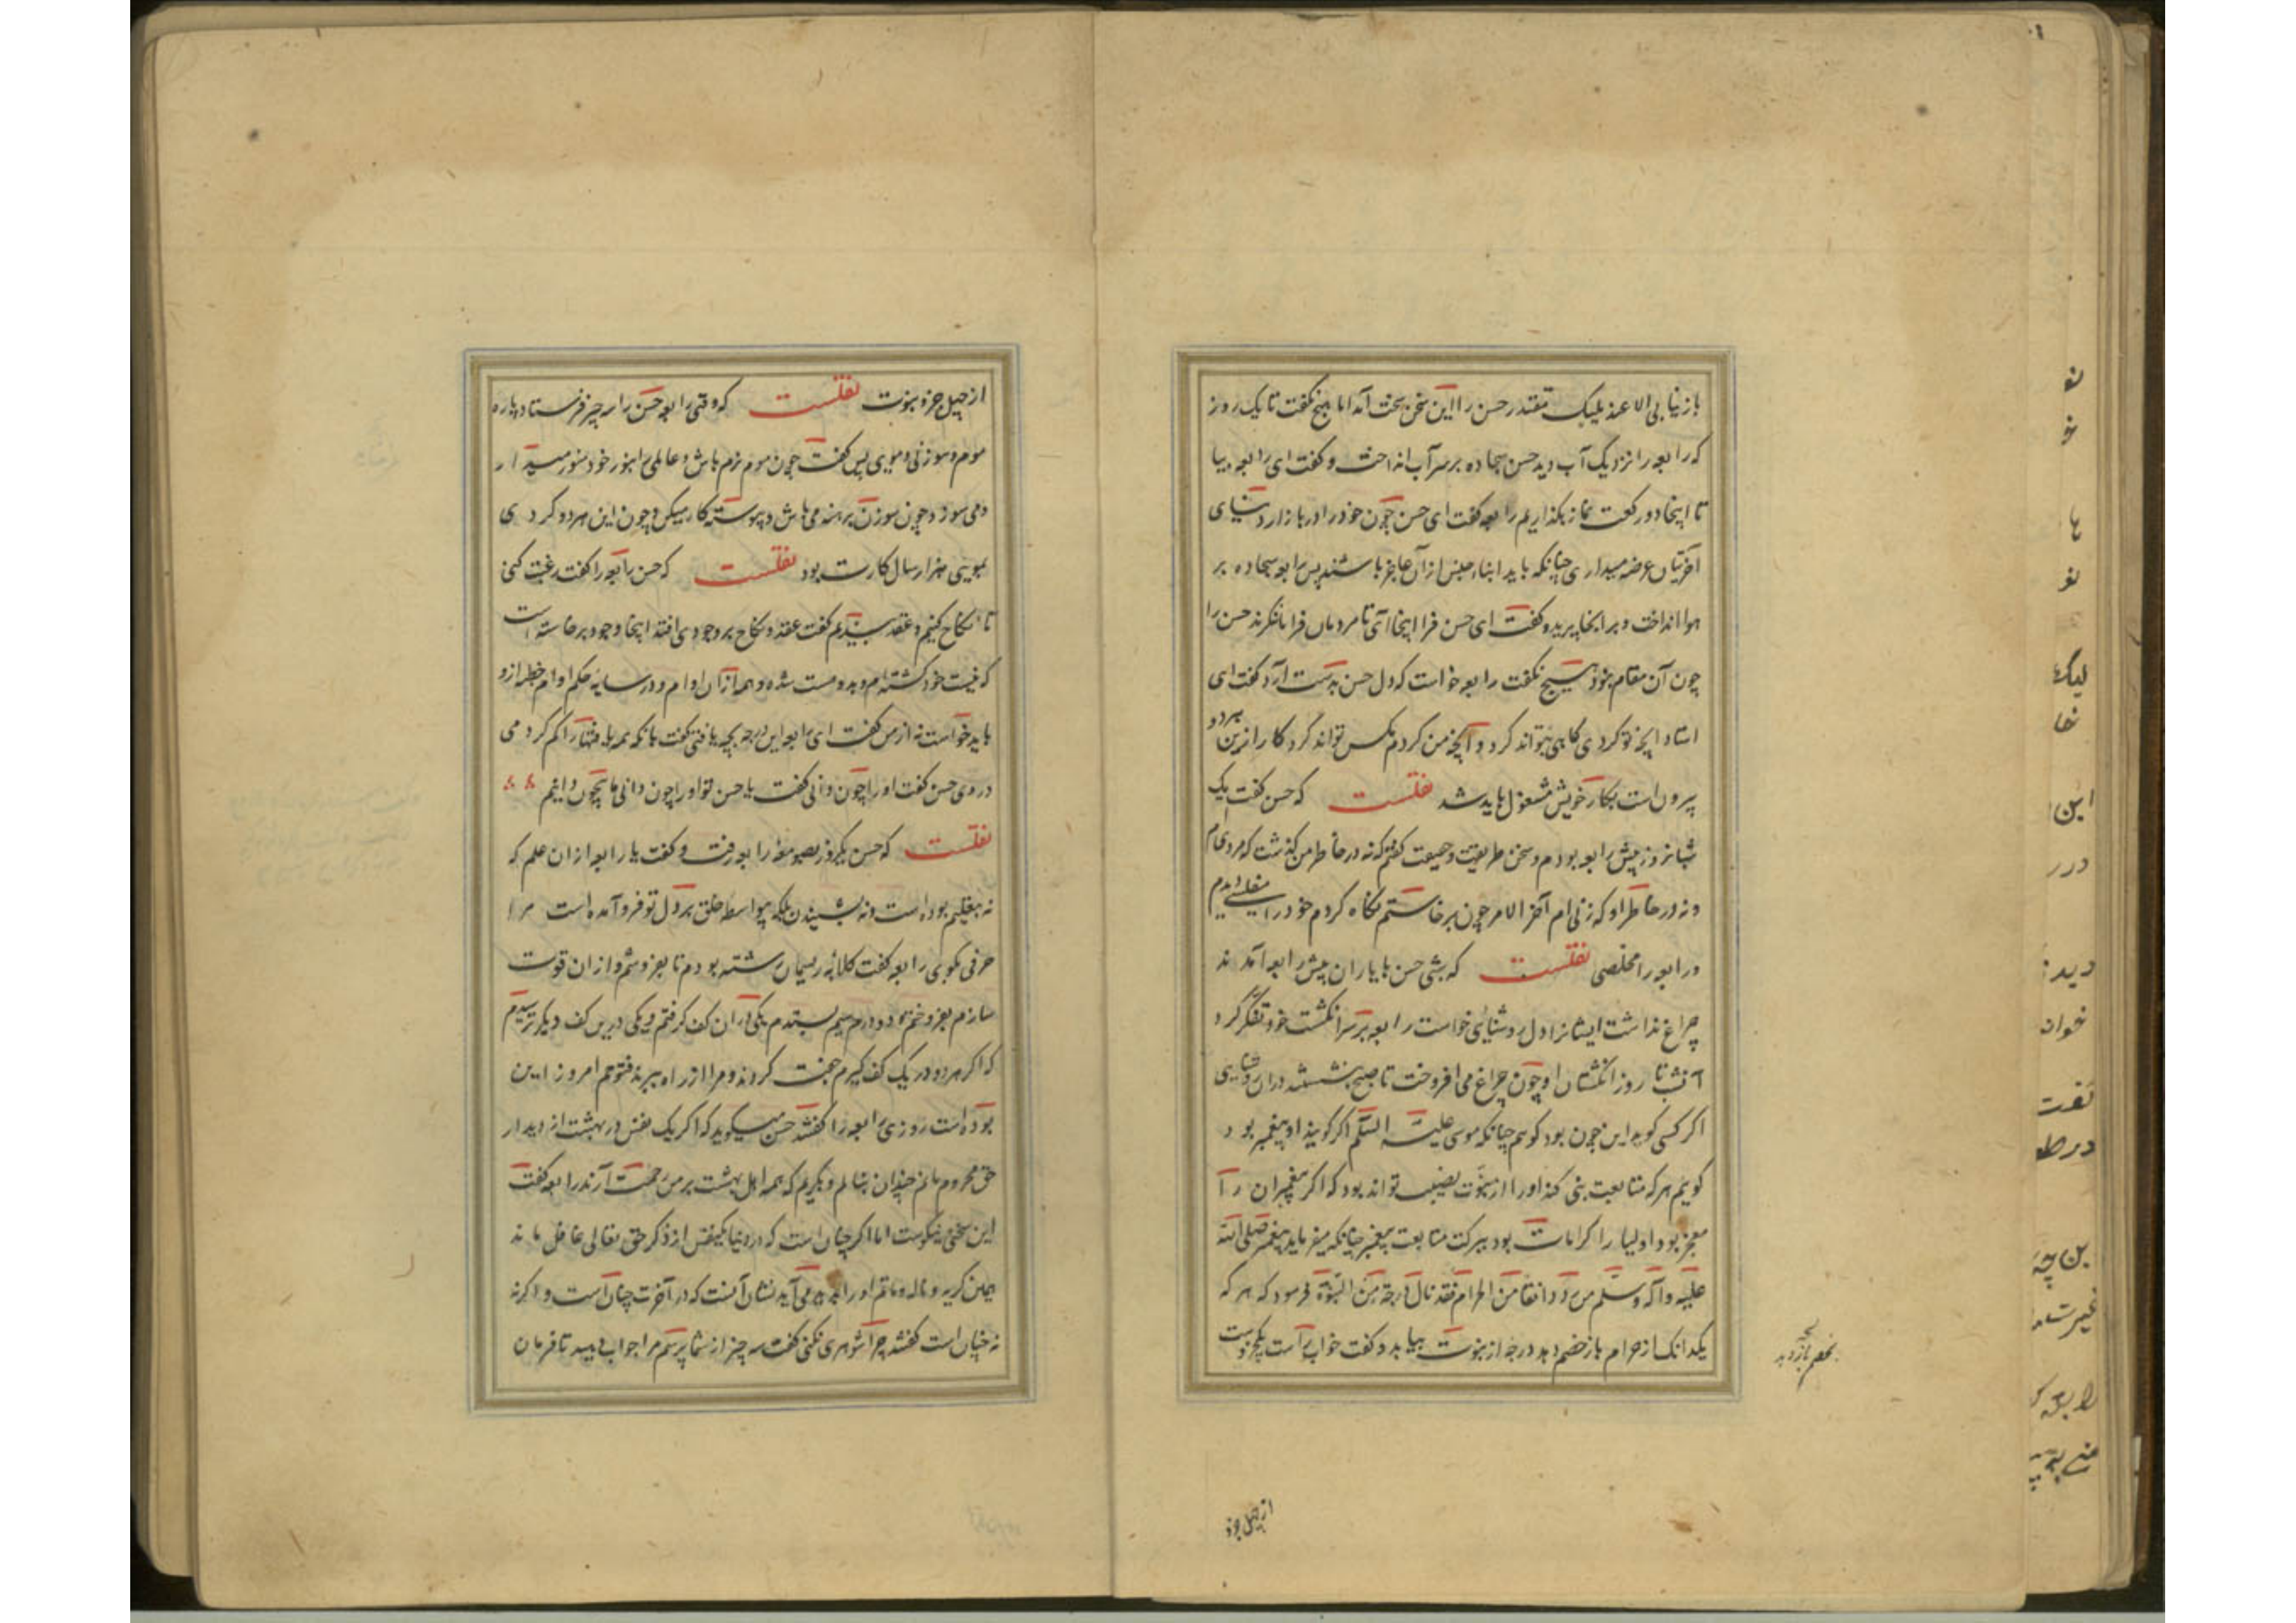 باز نیابی الا عند ملیک مقتدر حسن را این سخن سخت آمد اما هیچ نکفت تا یک روز
که رابعه را نزدیک آب دید حسن سجاده بر سر آب انداخت و کفت ای رابعه بیا
تا اینجا دو رکعت نماز بکذاریم رابعه کفت ای حسن چون خود را در بازار دنیای
آخرتیان عرضه میداری چنانکه باید ابناء جنس از آن عاجز باشند پس رابعه سجاده بر
هوا انداخت و بر آنجا پرید و کفت ای حسن فرا اینجا آی تا مردمان فرا ما نکرند حسن را
چون آن مقام نبود هیچ نکفت رابعه خواست که دل حسن بدست آرد کفت ای
استاد آنچه تو کردی ماهیی بتواند کرد و آنچه من کردم مکس تواند کرد کار ازین هردو
بیرون است بکار خویش مشغول باید شد نقلست که حسن کفت یک
شبانروز پیش رابعه بودم و سخن طریقت و حقیقت کفتم که نه در خاطر من کذشت که مردی ام
و نه در خاطر او که زنی ام آخر الامر چون برخاستم نکاه کردم خود را مفلسی دیدم
و رابعه را مخلصی نقلست که شبی حسن با یاران پیش رابعه آمدند
چراغ نداشت ایشانرا دل روشنائی خواست رابعه بر سر انکشت خود تف کرد
آن شب تا روز انکشتان او چون چراغ می افروخت تا صبح بنشستند در آن روشنایی
اکر کسی کوید این چون بود کویم چنانکه موسی علیه السلم اکر کویند او پیغمبر بود
کویم هر که متابعت نبی کند او را از نبوت نصیب تواند بود که اکر پیغمبران را
معجز بود اولیا را کرامات بود ببرکت متابعت پیغمبر چنانکه میفرماید پیغمبر صلی الله
علیه وآله وسلم من رد دانقا من الحرام فقد نال درجة من النبوة فرمود که هر که
یکدانک از حرام باز خصم دهد درجهٔ از نبوت بیابد و کفت خواب راست یکجزوست
بخصم باز دهد
از چهل جزو
از چهل جزو نبوت نقلست که وقتی رابعه حسن را سه چیز فرستاد پاره
موم و سوزنی و مویی پس کفت چون موم نرم باش و عالمی را بنور خود منور میدار
و می سوز و چون سوزن برهنه می باش و پیوسته کار میکن و چون این هر دو کردی
بمویی هزار سال کارت بود نقلست که حسن رابعه را کفت رغبت کنی
تا نکاح کنیم و عقد بندیم کفت عقد و نکاح بر وجودی افتد اینجا وجود برخاسته است
که نیست خود کشته ام و بدو هست شده و همه از آن او ام و در سایهٔ حکم او ام خطبه ازو
باید خواست نه از من کفت ای رابعه این درجه بچه یافتی کفت بانکه همه یافتها را کم کردم
در وی حسن کفت او را چون دانی کفت یا حسن تو او را چون دانی ما بیچون دانیم
نقلست که حسن یکروز بصومعهٔ رابعه رفت و کفت یا رابعه از ان علم که
نه بتعلیم بوده است و نه بشنیدن بلکه بیواسطه خلق بر دل تو فرو آمده است مرا
حرفی بکوی رابعه کفت کلافه ریسمان رشته بودم تا بفروشم و از ان قوت
سازم بفروختم و دو درم سیم بستدم یکی در ان کف کرفتم و یکی درین کف دیکر ترسیدم
که اکر هر دو در یک کف کیرم جفت کردند و مرا از راه ببرند فتوحم امروز این
بوده است روزی رابعه را کفتند حسن میکوید که اکر یک نفس در بهشت از دیدار
حق محروم مانم چندان بنالم و بکریم که همه اهل بهشت بر من رحمت آرند رابعه کفت
این سخن نیکوست اما اکر چنان است که در دنیا یکنفس از ذکر حق تعالی غافل ماند
همین کریه و ناله و ماتم او را می آید نشان آنست که در آخرت چنان است و اکر نه
نه چنان است کفتند چرا شوهری نکنی کفت سه چیز از شما پرسم مرا جواب دهید تا فرمان